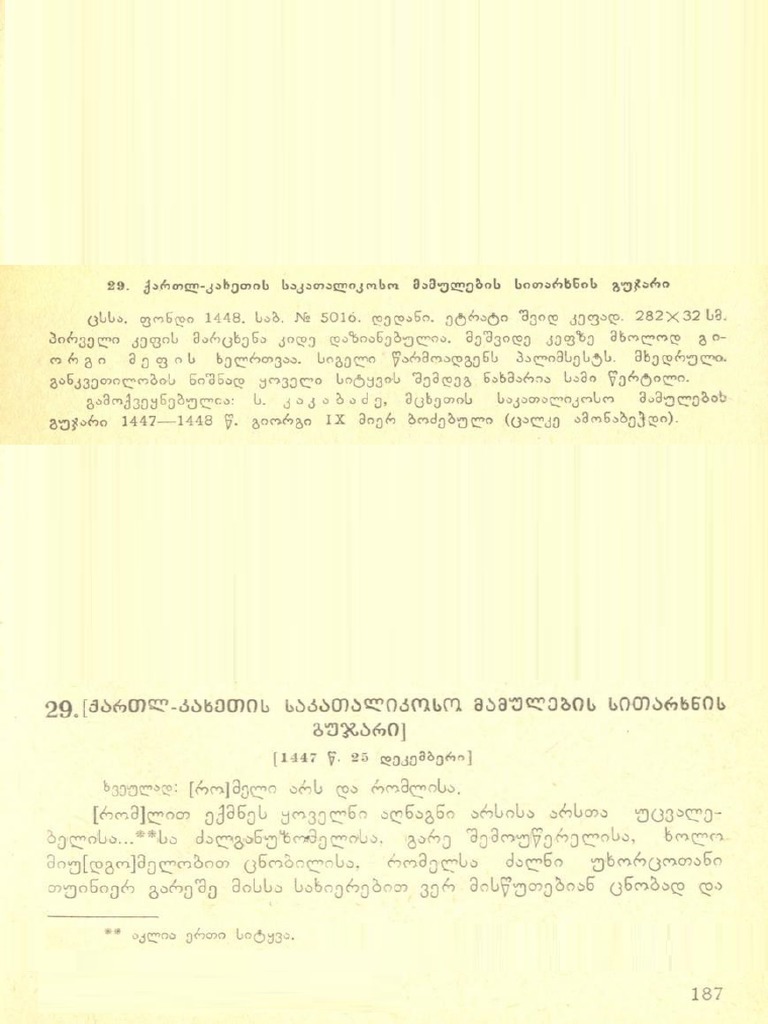 29. ქართლ-კახეთის საკათალიკოსო მამულების სითარხნის გუჯარი
ცსსა. ფონდი 1448. საბ. № 5016. დედანი. ეტრატი შვიდ კეფად. 282×32 სმ.
პირველი კეფის მარცხენა კიდე დაზიანებულია. მეშვიდე კეფზე მხოლოდ გი-
ორგი მეფის ხელრთვაა. სიგელი წარმოადგენს პალიმსესტს. მხედრული.
განკვეთილობის ნიშნად ყოველი სიტყვის შემდეგ ნახმარია სამი წერტილი.
გამოქვეყნებულია: ს. კაკაბაძე, მცხეთის საკათალიკოსო მამულების
გუჯარი 1447—1448 წ. გიორგი IX მიერ ბოძებული (ცალკე ამონაბეჭდი).
29. [ქართლ-კახეთის საკათალიკოსო მამულების სითარხნის
გუჯარი]
[1447 წ. 25 დეკემბერი]
ხვეულად: [რო]მელი არს და რომლისა.
[რომ]ლით ექმნეს ყოველნი აღნაგნი არსისა არსთა უცვალე-
ბელისა...**სა ძალგანუზომელისა. გარე შემოუწერელისა, ხოლო
მიუ[დგო]მელობით ცნობილისა. რომელსა ძალნი უხორცოთანი
თუინიერ გარეშე მისსა სახიერებით ვერ მისწუთებიან ცნობად და
** აკლია ერთი სიტყვა.
187